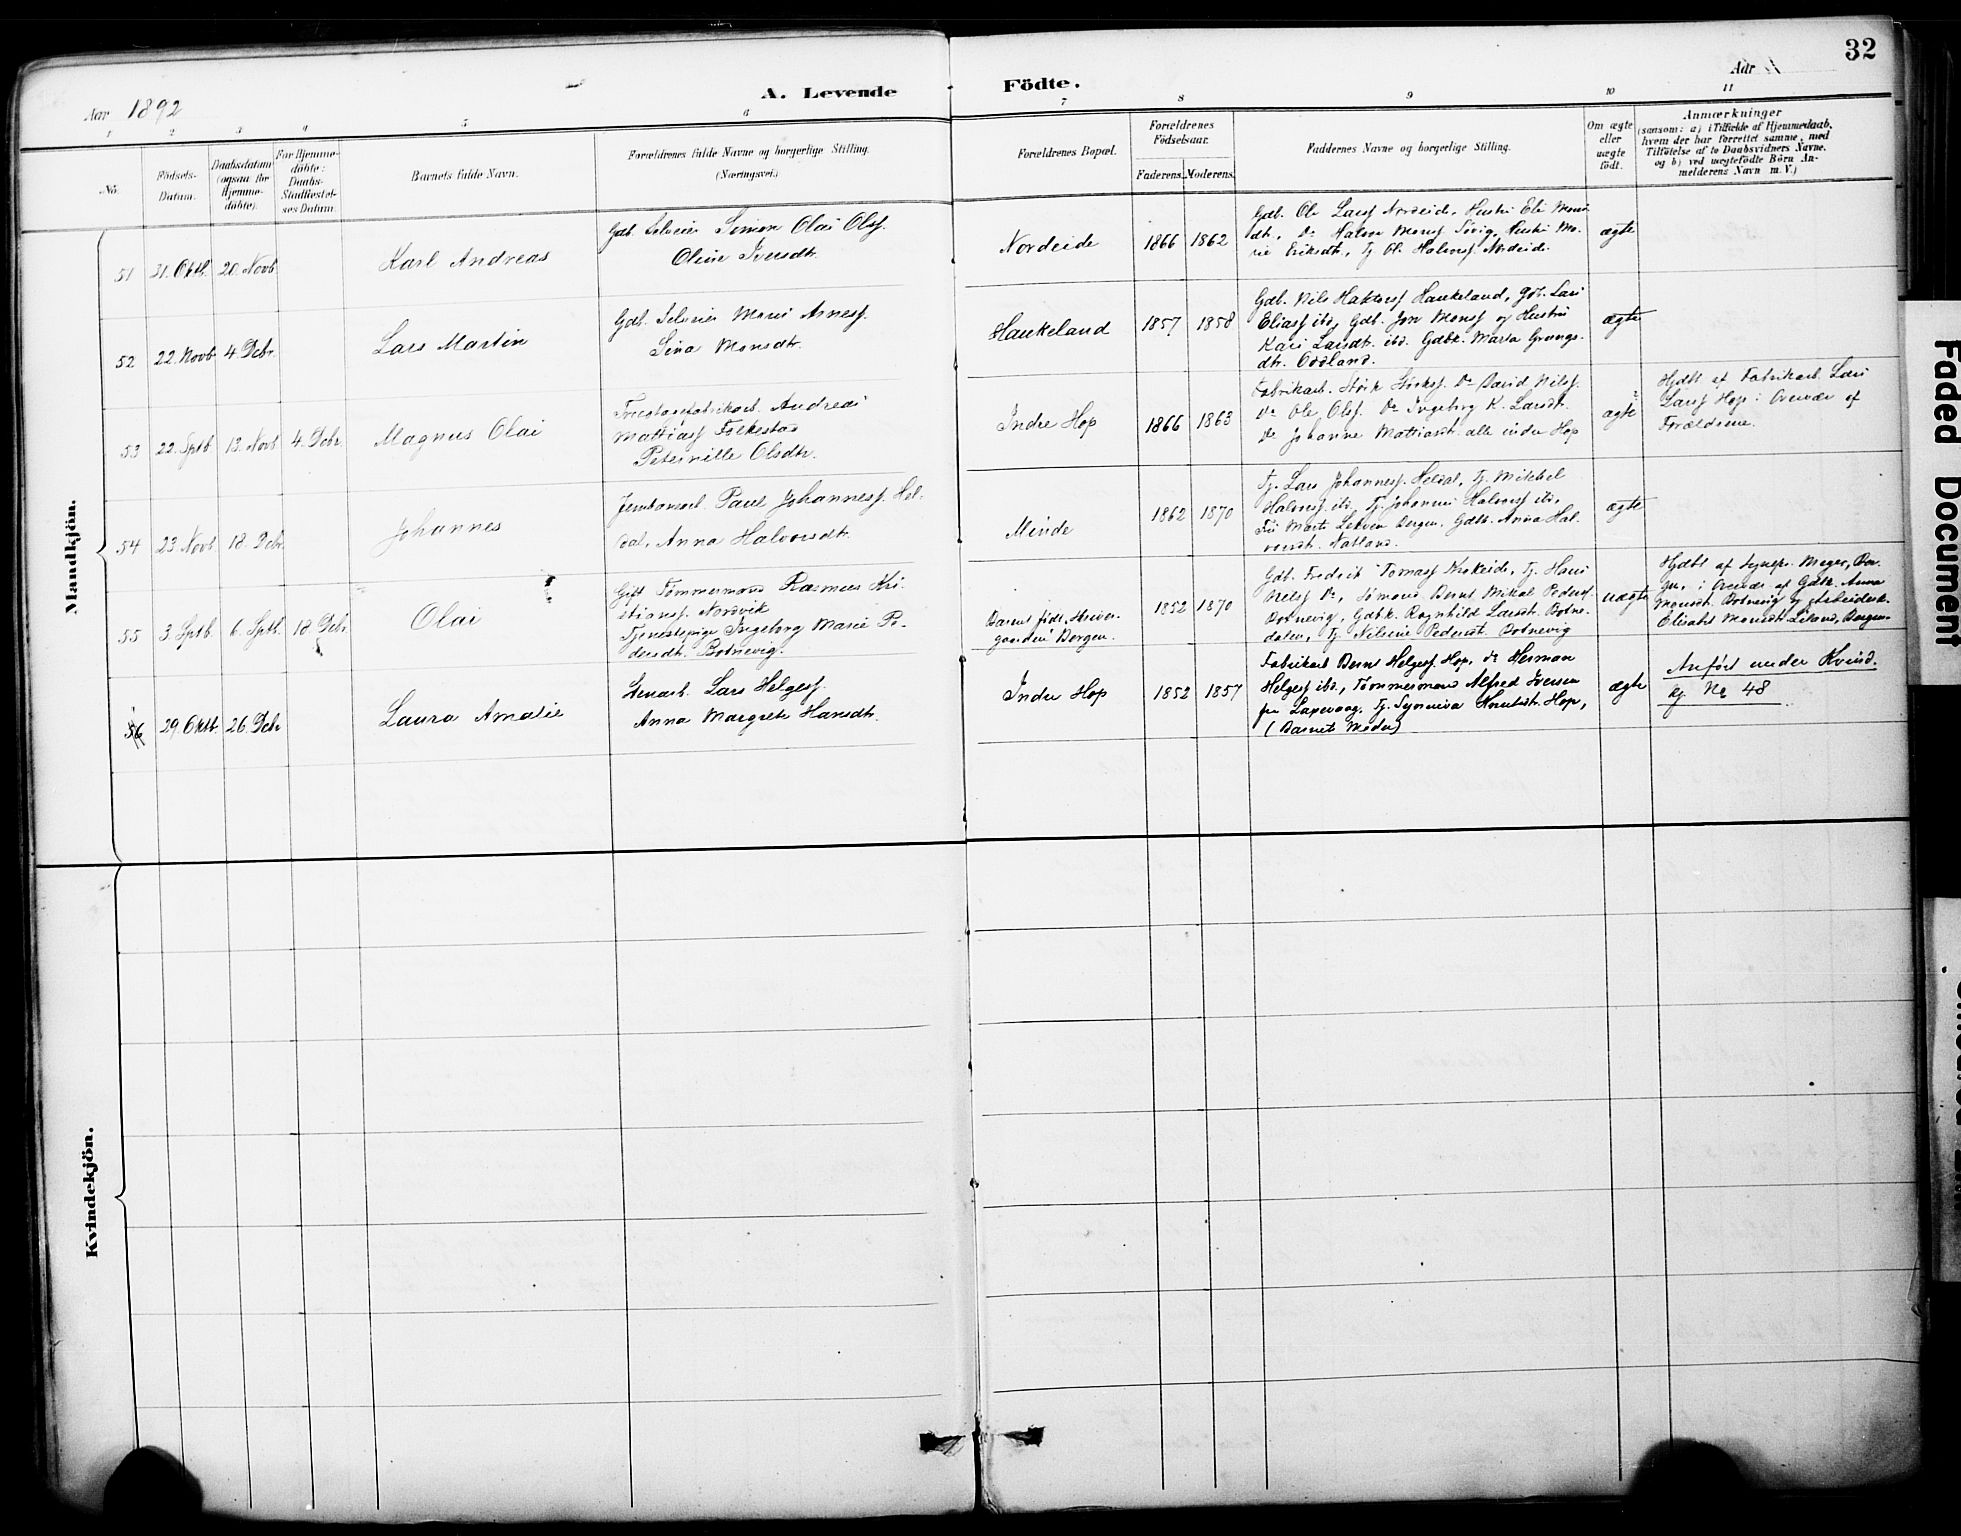 32
Aar 1892
A. Levende
Födte.
Aar
1 2 3 4 5 6 7 8 9 10 11
No.
Födsels-
Datum.
Daabsdatum
(ogsaa for
Hjemme-
döbte).
For Hjemme-
döbte:
Daabs-
Stadfæstel-
ses Datum.
Barnets fulde Navn.
Forældrenes fulde Navne og borgerlige Stilling.
(Næringsvei.)
Forældrenes Bopæl.
Forældrenes
Födselsaar.
Faderens. Moderens.
Faddernes Navne og borgerlige Stilling.
Om ægte
eller
uægte
födt.
Anmærkninger
(saasom: a) i Tilfælde af Hjemmedaab,
hvem der har forrettet samme, med
Tilföielse af to Daabsvidners Navne.
og b) ved uægtefödte Börn An-
melderens Navn m. V.)
Mandkjön.
51 31. Oktb. 20. Novb.
Karl Andreas
Gdb. Selveier Simon Olai Olss.
Oline Iversdtr.
Nordeide
1866 1862
Gdb. Ole Larss Nordeide, Hustru Eli Mons-
dtr., Do Halvor Monss Søvig, Hustru Ma-
rie Eriksdtr., Tj. Ole Halvorss. Nordeide.
ægte
52 22. Novb. 4. Debr.
Lars Martin
Gdb. Selveier Mons Arness.
Sina Monsdtr.
Haukeland
1857 1858
Gdb. Nils Haktorss Haukeland, Gdb. Lars
Eliass ibd., Gdb. Jon Monss og Hustru
Kari Larsdtr. ibd. Gdbk. Marta
dtr. Oddland.
ægte
53 22. Sptb. 13. Novb. 4. Debr.
Magnus Olai
Andreas
Mattiass Folkestad
Peternille Olsdtr.
Indre Hop
1866 1863
Fabrikarb. Størk Størkss. Do David Nilss.
Do Ole Olss. Do Ingeborg K. Larsdtr.
Do Johanne Mattiasdtr. alle indre Hop
ægte
Hjdbt af Fabrikarb. Lars
Larss Hop i Overvær af
Forældrene.
54 23. Novb. 18. Debr.
Johannes
Jernbanearb. Paul Johanness. Hel-
dal, Anna Halvorsdtr.
Minde
1862 1870
Tj. Lars Johanness. Heldal, Tj. Mikkel
Halvorss. ibd., Tj. Johannes Halvorss ibd.,
Marta Bergen, Gdbk. Anna Hal-
vorsdtr. Natland.
ægte
55 3. Sptb. 6. Sptb. 18. Debr.
Olai
Gift Tømmermand Rasmus Kri-
stianss. Nordvik
Tjenestepige Ingeborg Marie Pe-
dersdtr. Botnevig.
Barnet født, Moder-
gaarden Bergen.
1852 1870
Gdb. Fredrik Tomass Krokeide, Tj. Hans
Nilss Do, Sømand Bernt Mikal Pederss
Botnevig, Gdbk. Ragnhild Larsdtr. Botne-
dalen, Tj. Nilsine Pedersdtr. Botnevig
uægte
Hjdbt af Meyer, Ber-
gen, i Overvær af Gdbk. Anna
Monsdtr. Botnevig og Arbeidersk.
Elisabet Monsdtr. Bergen.
56 29. Oktb. 26. Debr
Laura Amalie
Stenarb. Lars Helgess.
Anna Margrete Hansdtr.
Indre Hop
1852 1857
Fabrikarb Bernt Helgess. Hop, do Herman
Helgess ibd., Tømmermand Alfred Iversen
fra Laxevaag, Tj. Synneva Knutsdtr. Hop,
(Barnets Moder)
ægte
Anført under Kvind.
kj. No 48
Kvindekjön.
Faded Document